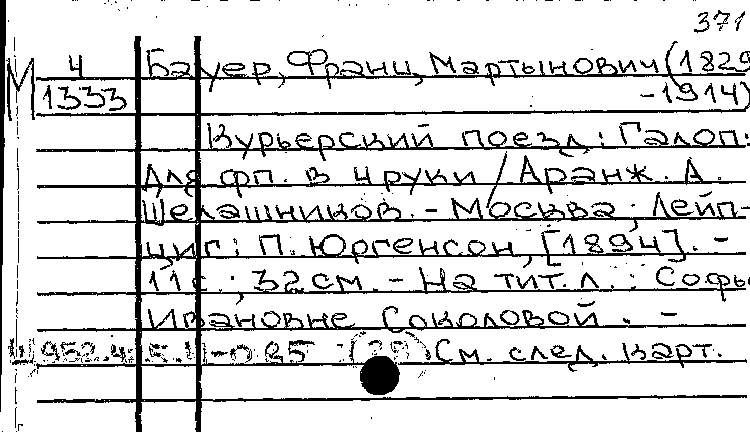 371
М 4 Бауер, Франц, Мартынович (1829
1333 -1914)
Курьерский поезд: Галоп:
Для фп. в 4 руки / Аранж. А.
Шелашников. - Москва; Лейп-
циг: П. Юргенсон, [1894]. -
11 с.; 32 см. - На тит. л.: Софье
Ивановне Соколовой. -
См. след. карт.